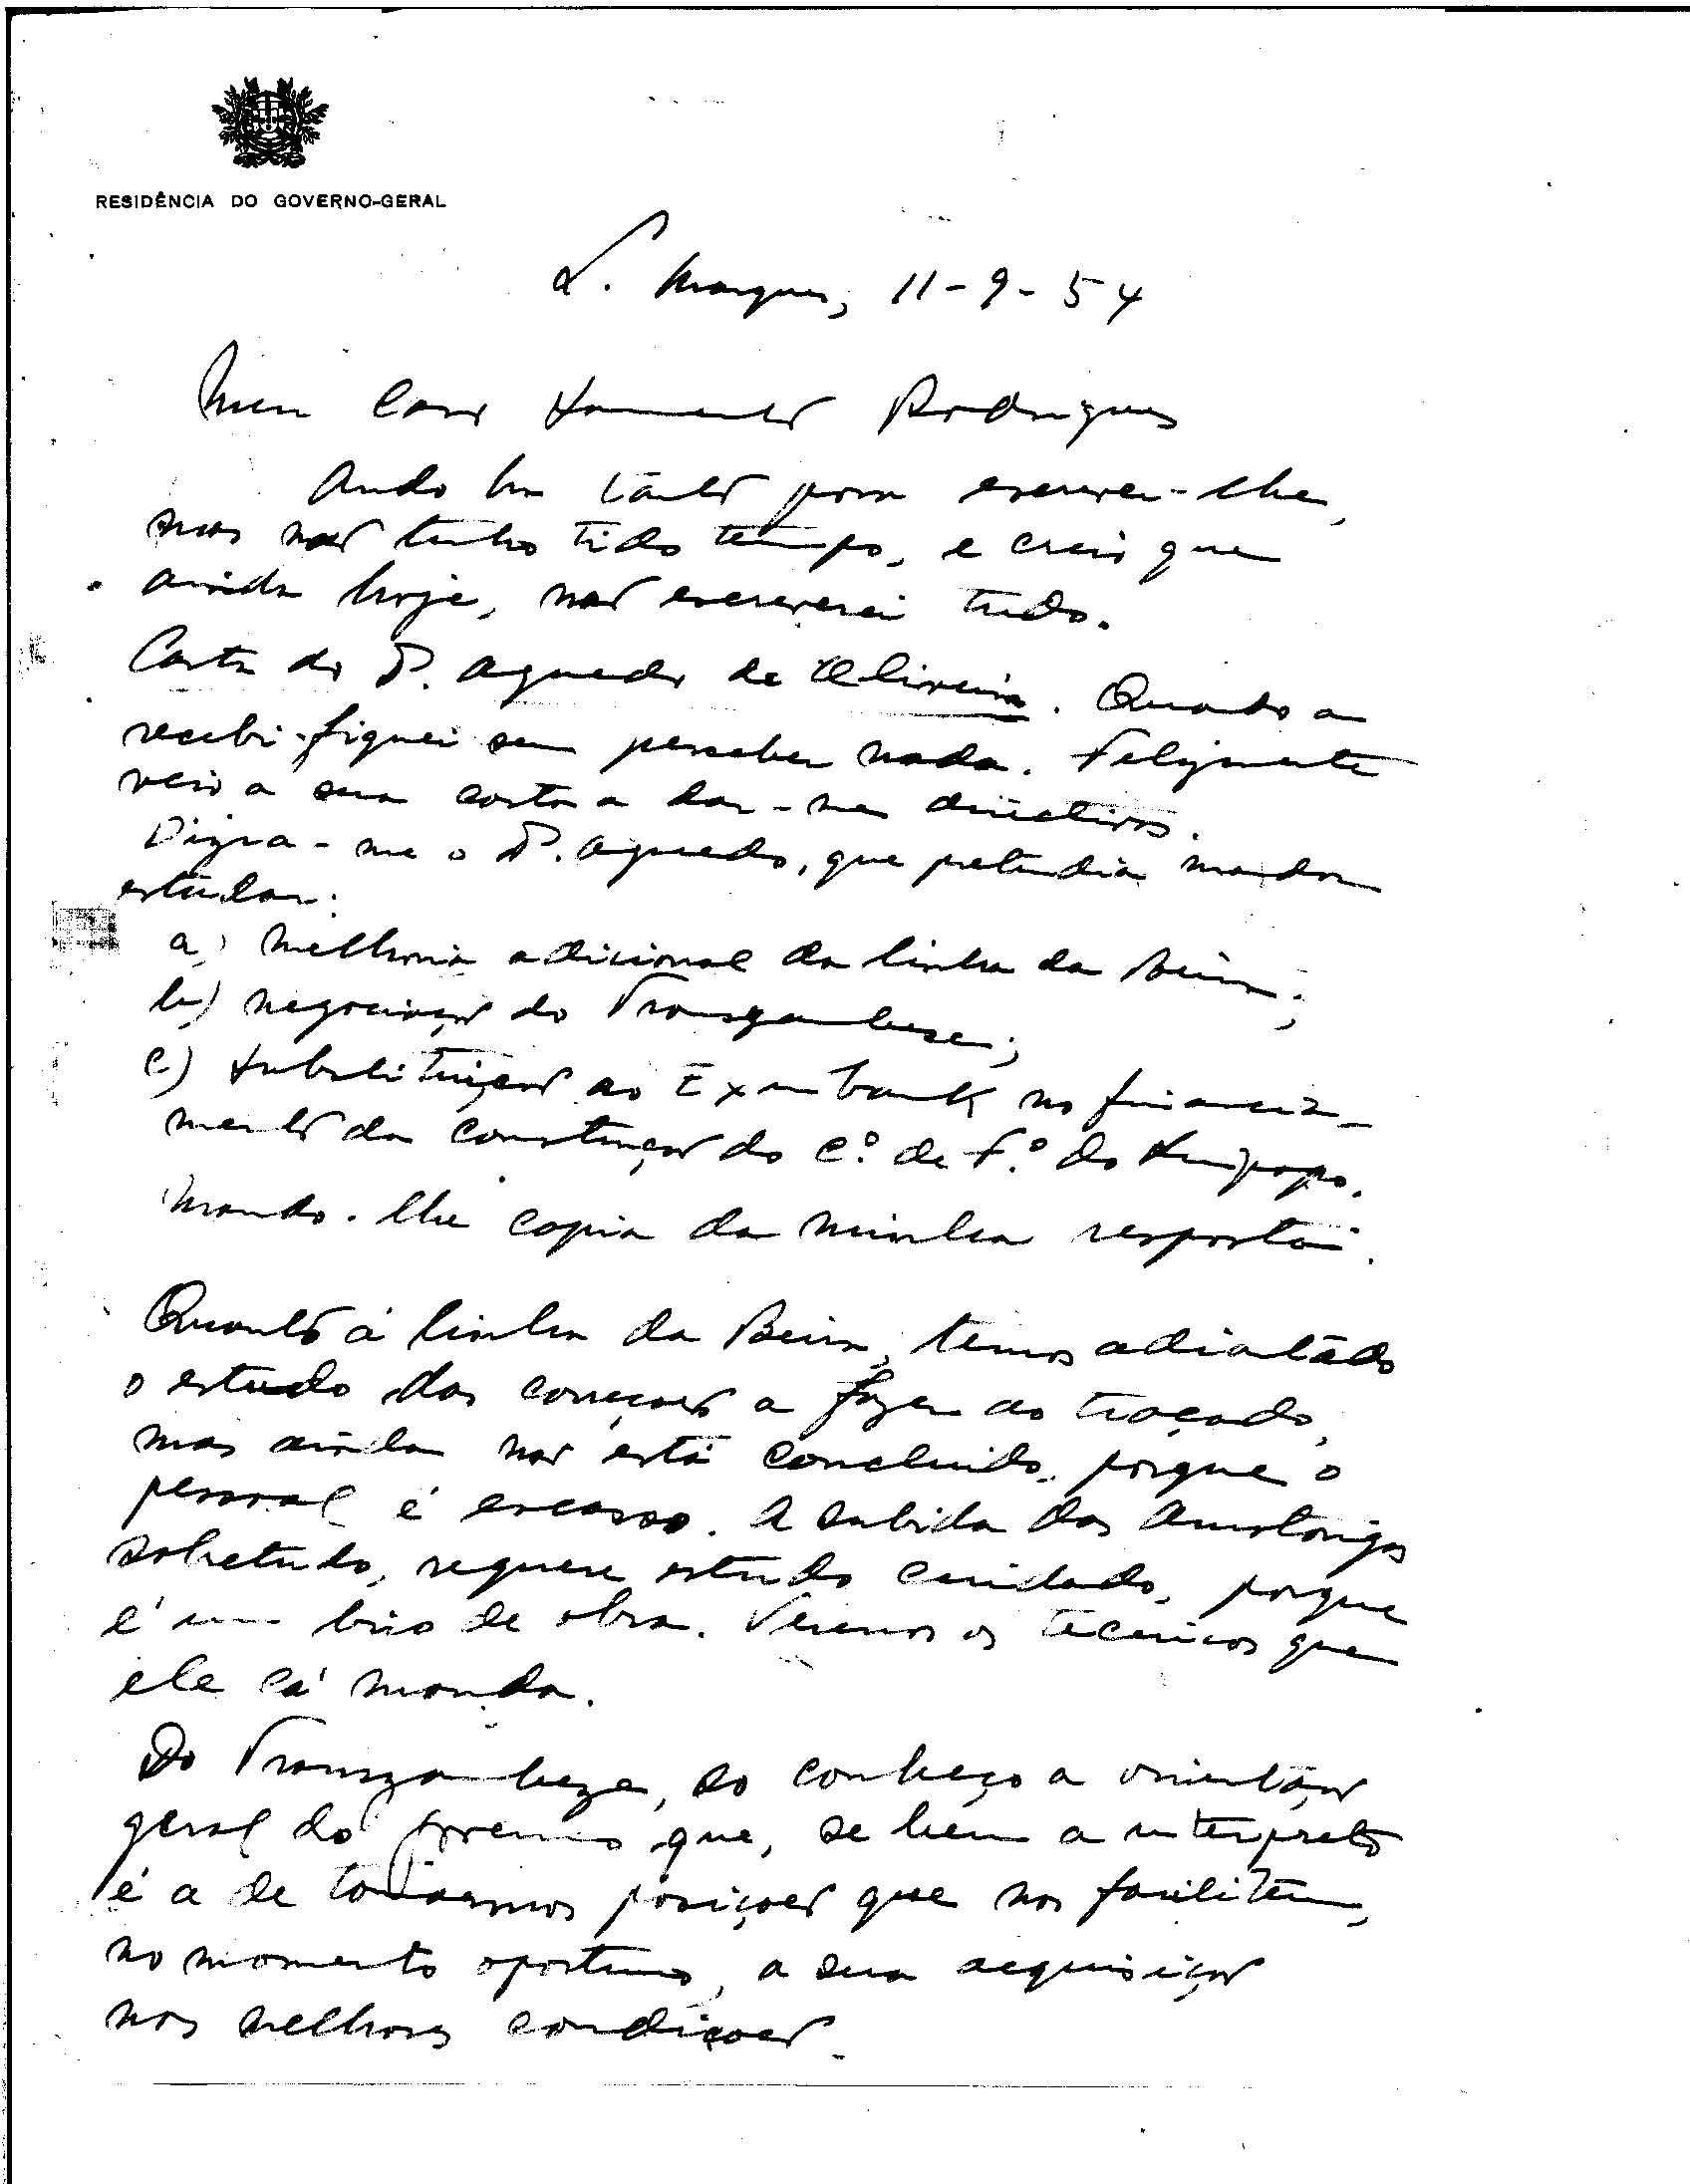 RESIDÊNCIA DO GOVERNO-GERAL
L. Marques, 11-9-54
Meu Caro Sarmento Rodrigues
Ando há tanto para escrever-lhe,
mas não tenho tido tempo, e creio que
ainda hoje, não escreverei tudo.
Carta do Dr. Aguedo de Oliveira. Quando a
recebi fiquei sem perceber nada. Felizmente
veio a sua carta a dar-me directivas.
Dizia-me o Dr. Aguedo, que pretendia mandar
estudar:
a) melhoria adicional da linha da Beira;
b) negociação do Transzambeze;
c) substituição ao Eximbank no financia-
mento da construção do C.º de F.º do Limpopo.
Mando-lhe copia da minha resposta.
Quanto á linha da Beira, temos adiantado
o estudo das correções a fazer ao traçado,
mas ainda não está concluido, porque o
pessoal é escasso. A subida das Amatongas
sobretudo, requere estudo cuidado, porque
é um bico de obra. Veremos os tecnicos que
ele cá manda.
Do Transzambeze, so conheço a orientação
geral do Governo que, se bem a interpreto
é a de tomarmos posições que nos facilitem,
no momento oportuno, a sua acquisição
nas melhores condições.